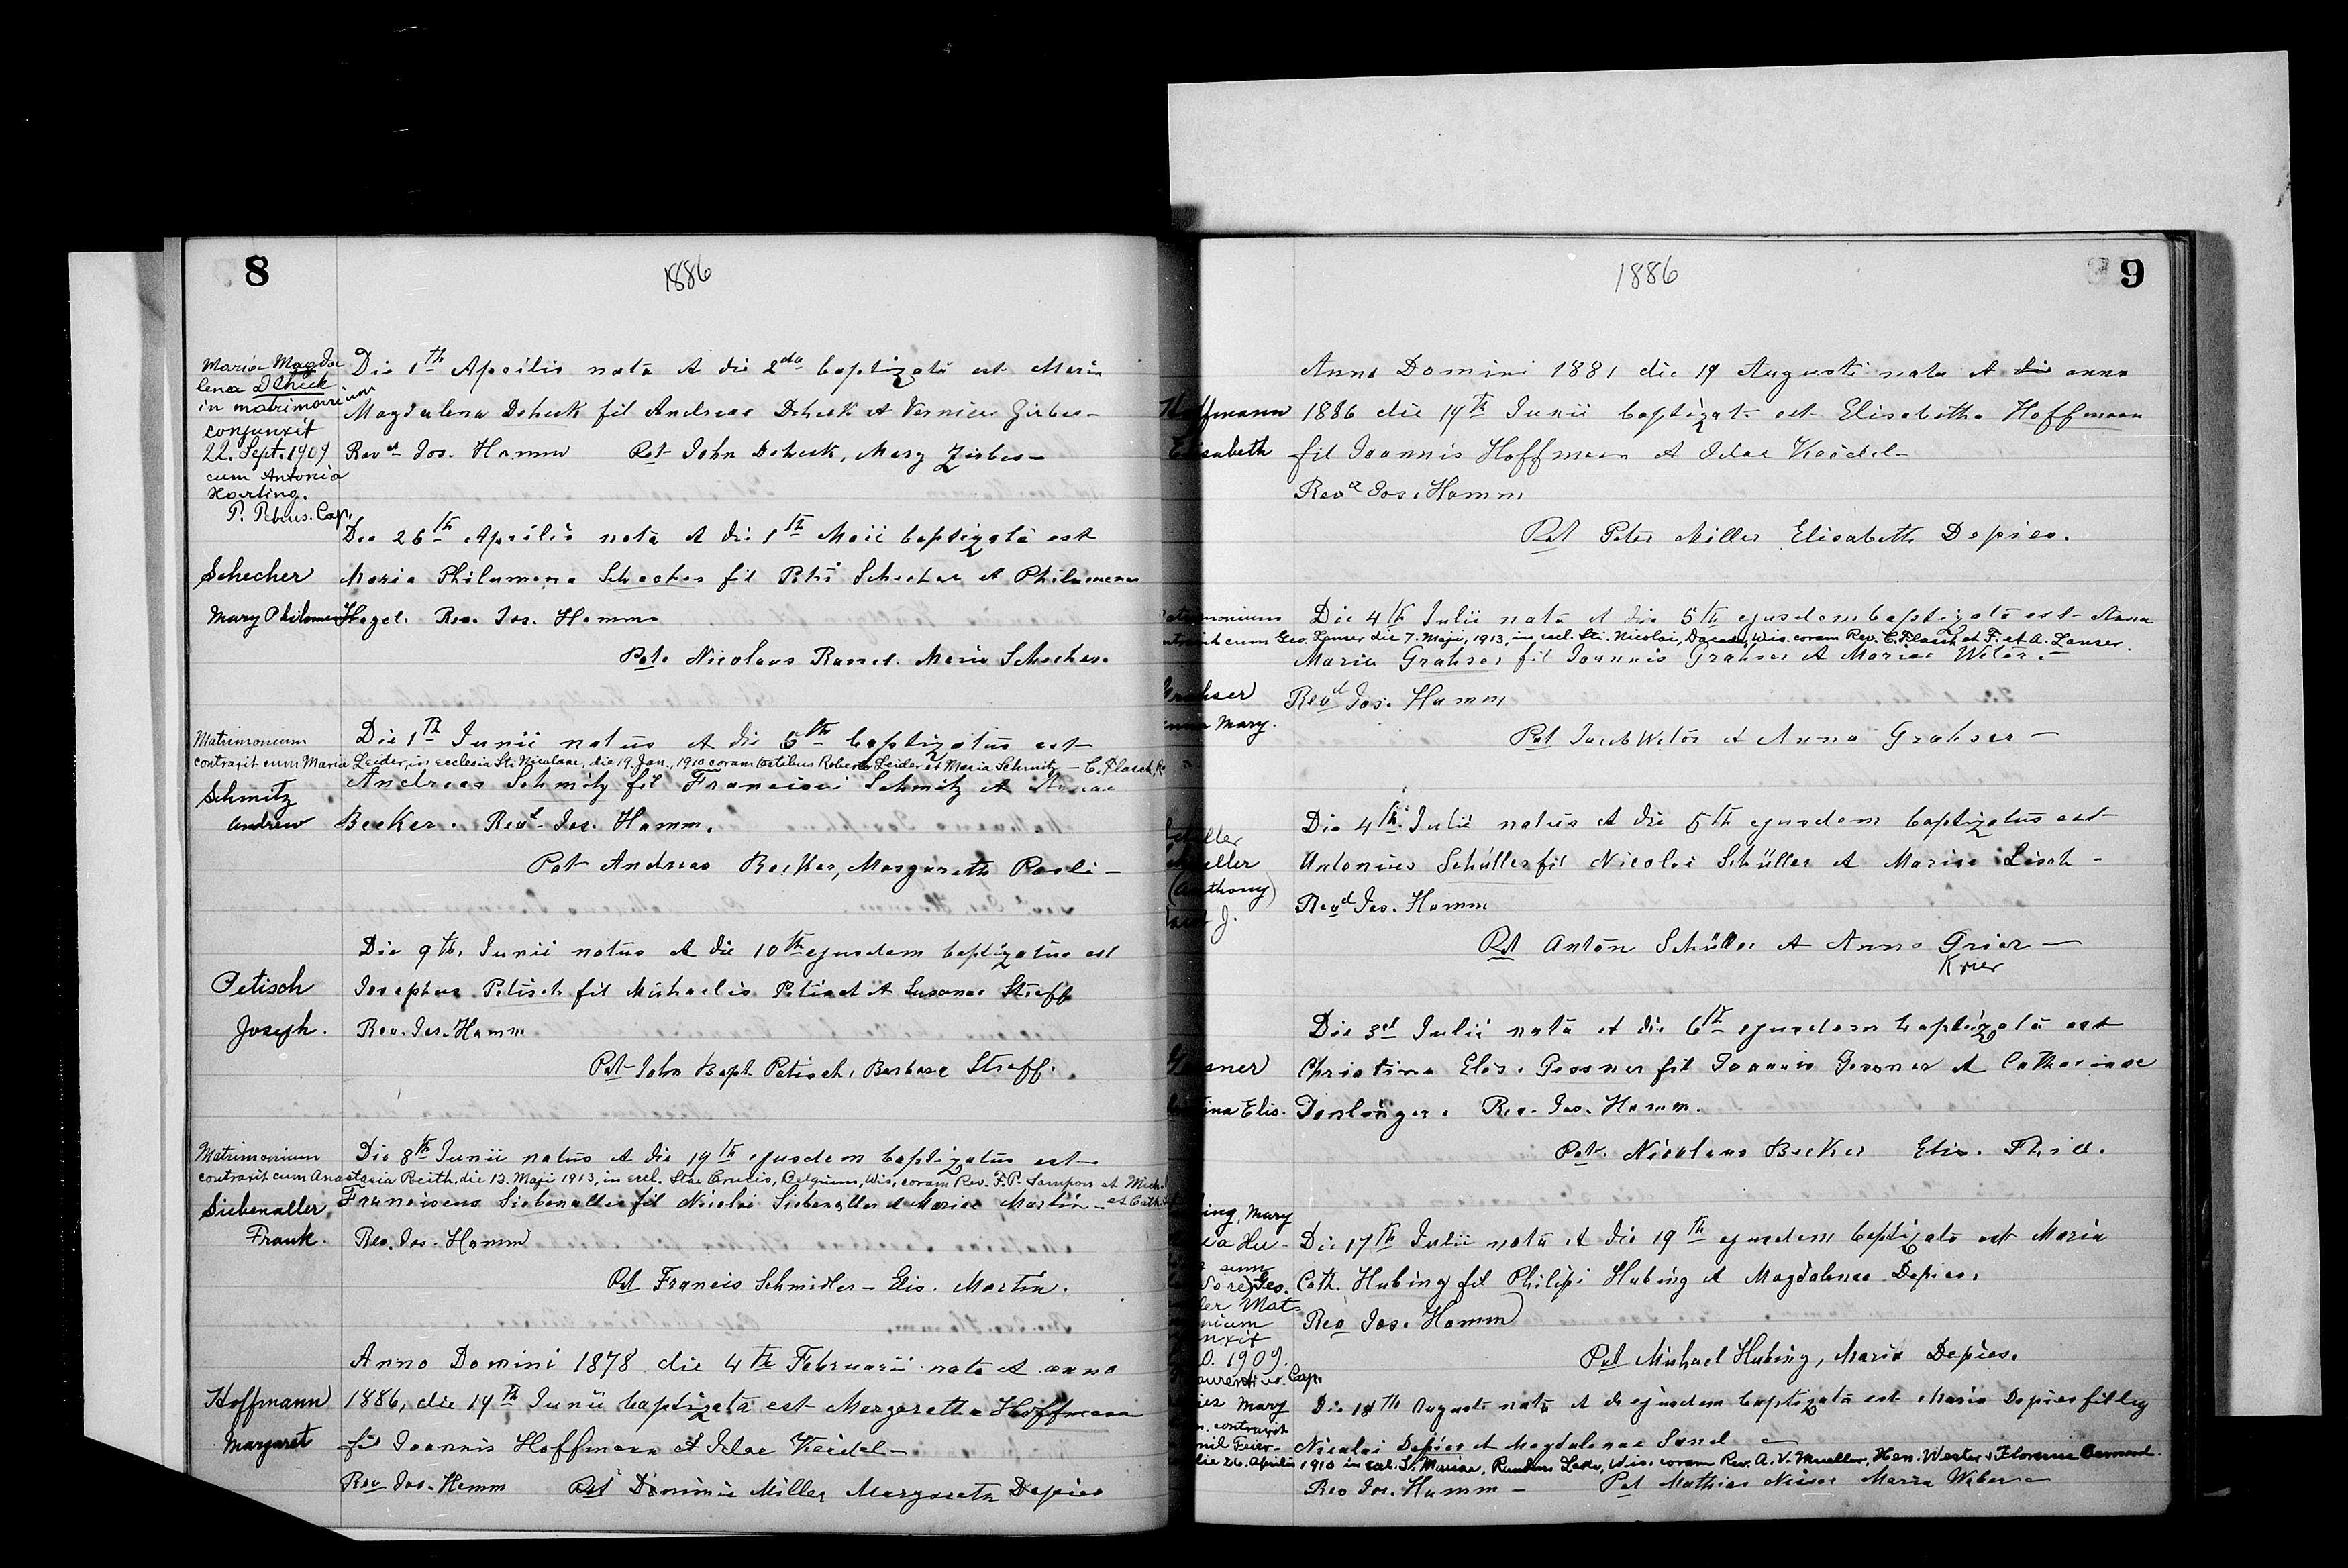 8
1886
Maria Magda
lena Scheck
in matrimonium
conjunxit
22. Sept. 1909
cum Antonio
P. Petrus. Cap.
Die 1th Aprilis nata et die 2da baptizata est Maria
Magdalena Scheck fil Andreae Scheck et
Revd Jos. Hamm Pat John Scheck, Mary Zirbes
Die 26th Aprilis nata et die 1th Maii baptizata est
Schecher
Maria Philumena Schecher fil Petri Schecher et Philumenae
Mary Philomena
Hagel. Rev. Jos. Hamm
Pat. Nicolaus Maria Schecher.
Die 1th Iunii natus et die 5th baptizatus est
Matrimonium
contraxit cum Maria Leider, in ecclesia Sti Nicolaae, die 19. Jan., 1910 coram testibus Roberto Leider et Maria Schmitz — C. Flasch,
Andreas Schmitz fil Francisci Schmitz et Annae
Schmitz
Andrew
Becker. Revd Jos. Hamm.
Pat Andreas Becker, Margareth Pauli —
Die 9th. Iunii natus et die 10th ejusdem baptizatus est
Petisch
Josephus Petisch fil Michaelis Petisch et Susanae Streff
Joseph.
Rev. Jos. Hamm
Pat John Bapt. Petisch, Barbara Streff.
Matrimonium
Die 8th Iunii natus et die 19th ejusdem baptizatus est
contraxit cum Anastasia Reith, die 13. Maji 1913, in eccl. Stae Crucis, Belgium, Wis, coram Rev. F. P. Sampon et Mich.
et Cath.
Siebenaller
Franciscus Siebenaller fil Nicolai Siebenaller et Mariae Martin —
Frank.
Rev. Jos. Hamm
Pat Francis Schmidler — Elis. Martin.
Anno Domini 1878 die 4th Februarii nata et anno
Hoffmann
1886, die 19th Iunii baptizata est Margaretta Hoffmann
Margaret
fil Joannis Hoffmann et Idae Keidel —
Rev Jos. Hamm Pat Dominic Miller Margareth Depies
9
1886
Anno Domini 1881 die 19 Augusti nata et die anno
Hoffmann
1886 die 19th Junii baptizata est Elisabetha Hoffmann
Elisabeth
fil Joannis Hoffmann et Idae Keidel —
Revd Jos. Hamm
Pat Peter Miller Elisabeth Depies.
Die 4th Iulii nata et die 5th ejusdem baptizata est Anna
cum Geo. Lanser die 7. Maji, 1913, in eccl. Sti. Nicolai, Dacada, Wis. coram Rev. C. Flasch et F. et A. Lanser.
Maria Grahser fil Joannis Grahser et Mariae Wetor. —
Revd Jos. Hamm
Mary.
Pat Jacob Wetor et Anna Grahser —
Die 4th Iulii natus et die 5th ejusdem baptizatus est
Antonius Schüller fil Nicolai Schüller et Mariae Lisch —
(Anthony)
J.
Revd Jos. Hamm
Pat Anton Schüller et Anna Grier —
Krier
Die 3rd Iulii nata et die 6th ejusdem baptizata est
Christina Elis. Gessner fil Joannis Gessner et Catharinae
Elis.
Rev. Jos. Hamm.
Pat. Nicolaus Becker Elis. Thill.
Mary
Die 17th Iulii nata et die 19th ejusdem baptizata est Maria
Cath. Hubing fil Philipi Hubing et Magdalenae Depies.
Geo.
Mat-
Rev Jos. Hamm
1909.
Cap.
Pat Michael Hubing, Maria Depies.
Mary
contraxit
Die 18th Augusti nata et de ejusdem baptizata est Maria Depies fil leg
Nicolai Depies et Magdalenae Sand —
die 26. Aprilis 1910 in eccl. S. Mariae, Random Lake, Wis. coram Rev. A. V. Mueller, Hen. Wester & Florence
Rev Jos. Hamm — Pat Mathias Maria Weber —